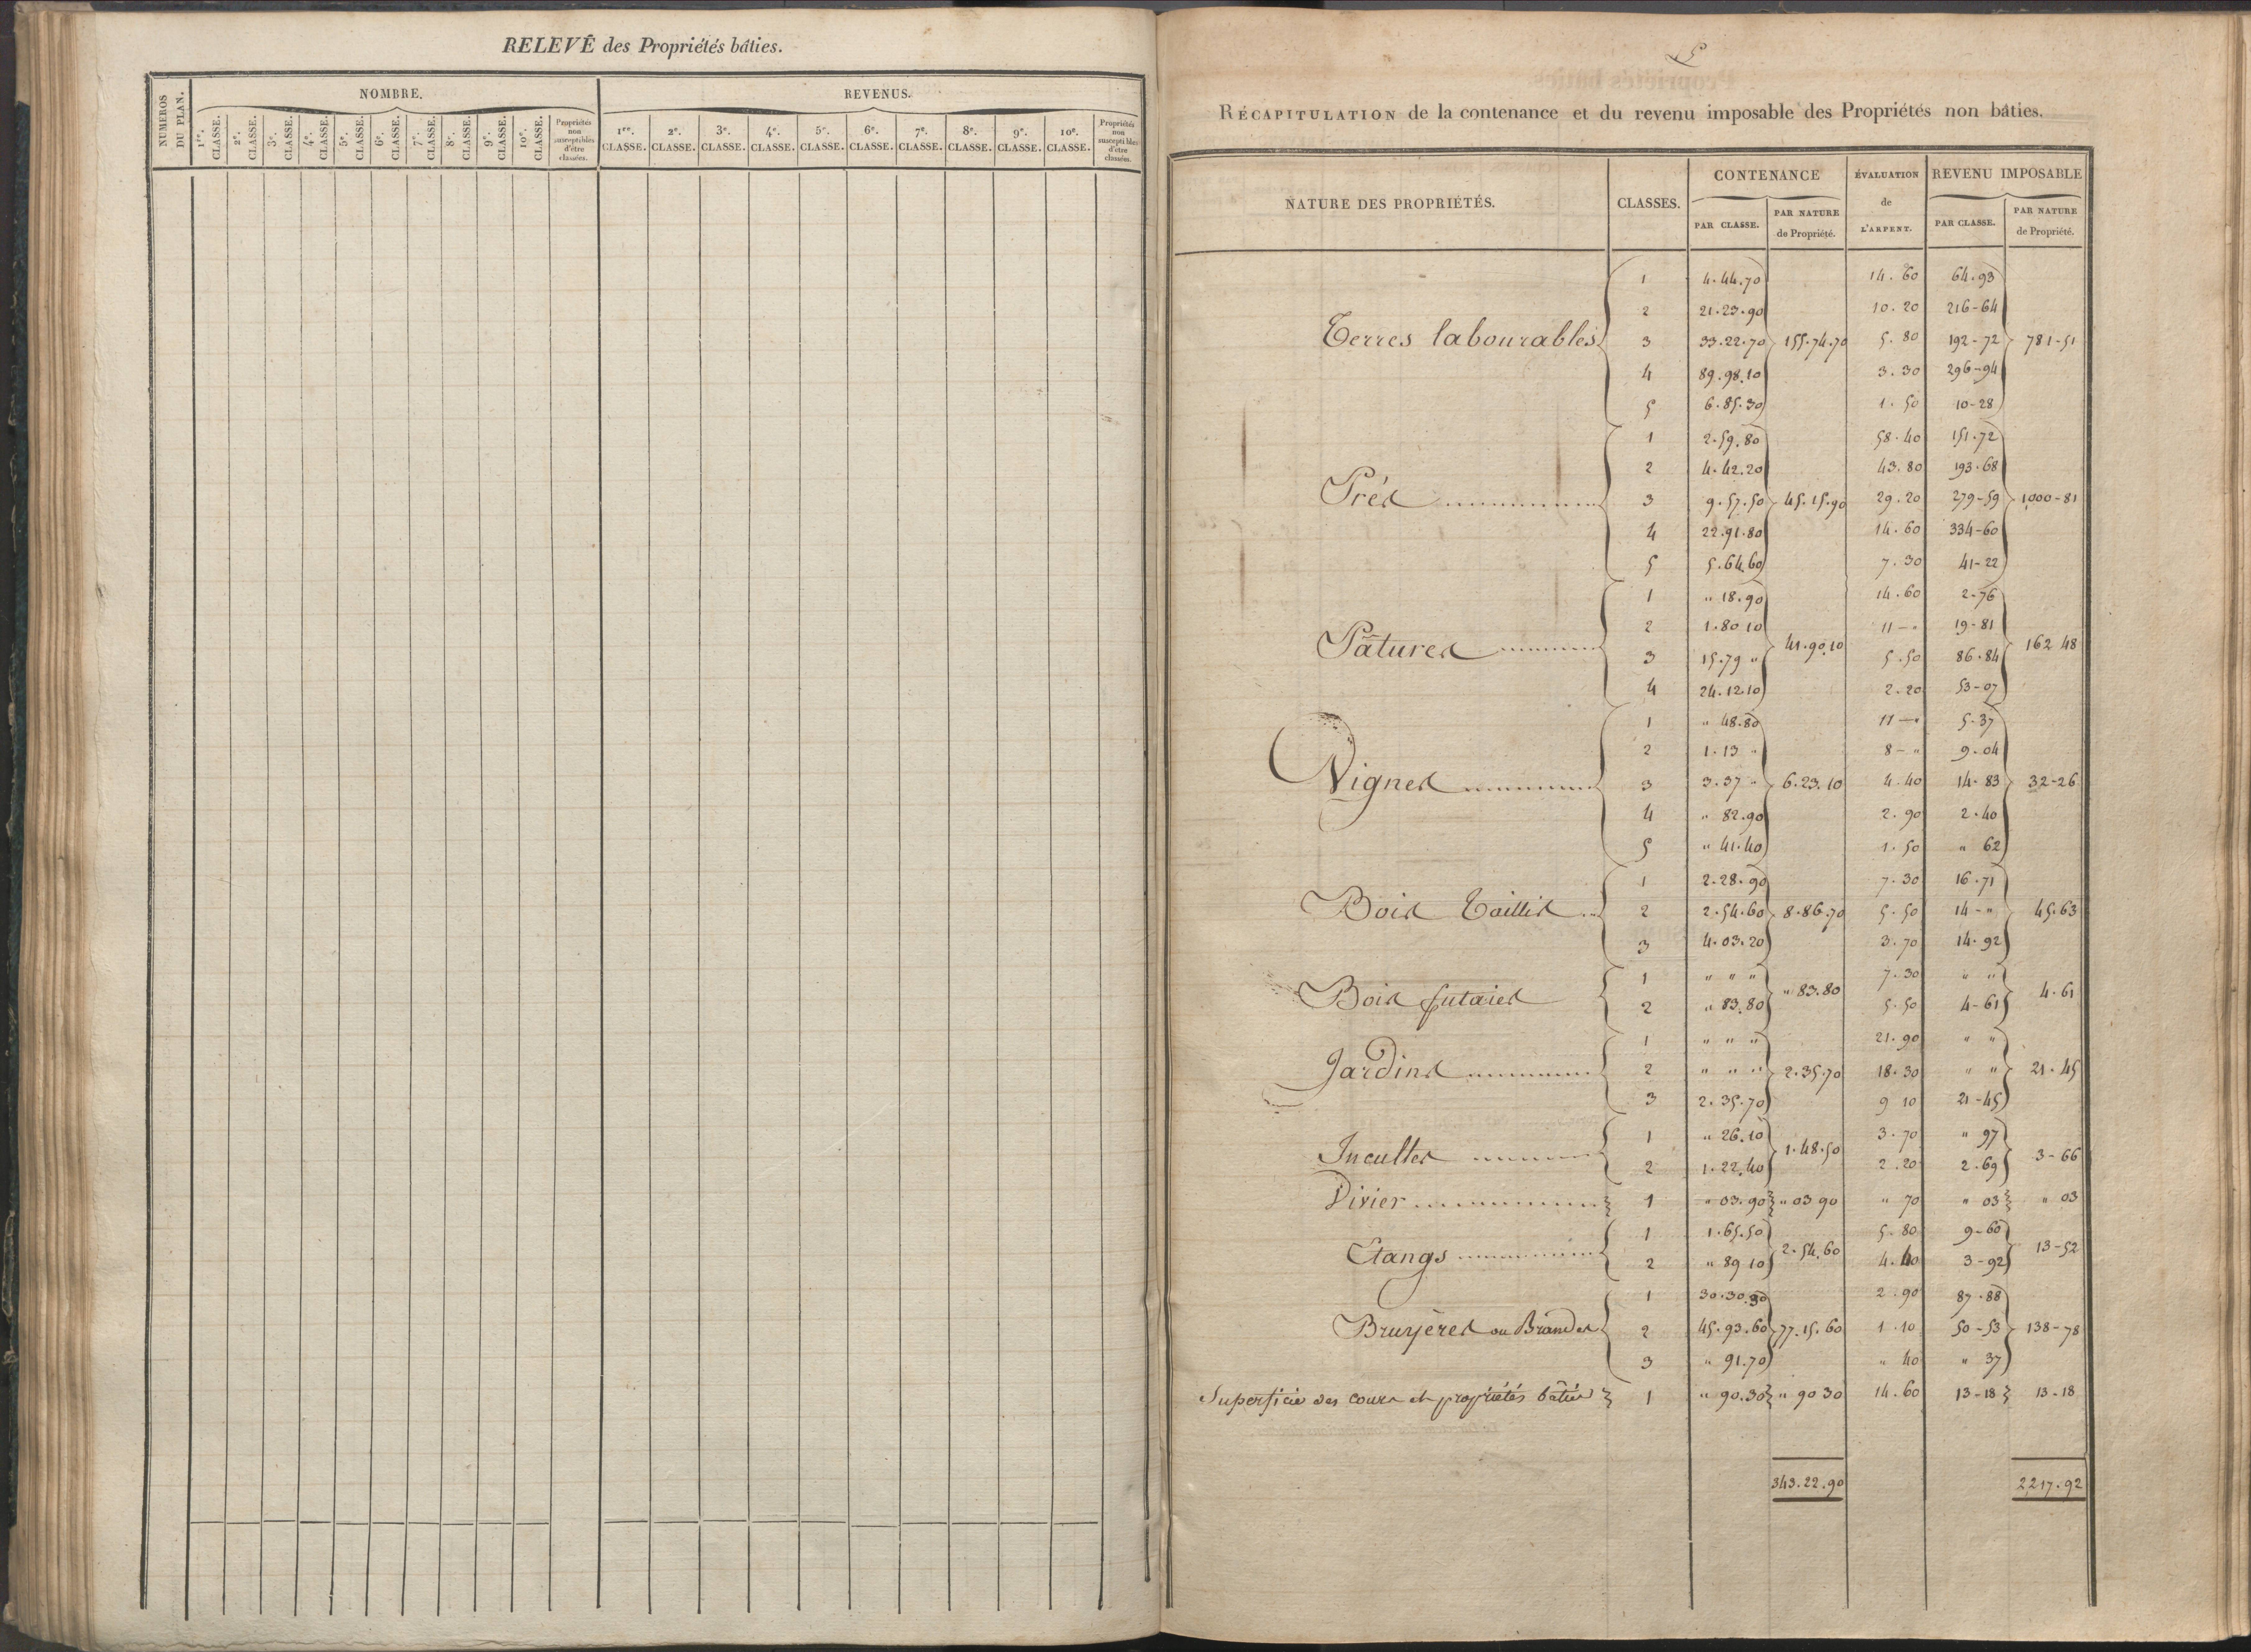 RELEVÉ des Propriétés bâties.
NUMEROS DU PLAN.
NOMBRE.
REVENUS.
1re. CLASSE. 2e. CLASSE. 3e. CLASSE. 4e. CLASSE. 5e. CLASSE. 6e. CLASSE. 7e. CLASSE. 8e. CLASSE. 9e. CLASSE. 10e. CLASSE. Propriétés non susceptibles d'être classées.
1re. CLASSE. 2e. CLASSE. 3e. CLASSE. 4e. CLASSE. 5e. CLASSE. 6e. CLASSE. 7e. CLASSE. 8e. CLASSE. 9e. CLASSE. 10e. CLASSE. Propriétés non susceptibles d'être classées.
5
RÉCAPITULATION de la contenance et du revenu imposable des Propriétés non bâties.
NATURE DES PROPRIÉTÉS. CLASSES. CONTENANCE ÉVALUATION de L'ARPENT. REVENU IMPOSABLE
PAR CLASSE. PAR NATURE de Propriété. PAR CLASSE. PAR NATURE de Propriété.
1 4.44.70 14.60 64.93
2 21.23.90 10.20 216-64
Terres labourables 3 33.22.70 155.74.70 5.80 192-72 781-51
4 89.98.10 3.30 296-94
5 6.85.30 1.50 10-28
1 2.59.80 58.40 151.72
2 4.42.20 43.80 193.68
Prés 3 9.57.50 45.15.90 29.20 279-59 1,000-81
4 22.91.80 14.60 334-60
5 5.64.60 7.30 41-22
1 " 18.90 14.60 2-76
2 1.80 10 11 - " 19-81
Pâtures 41.90.10 162 48
3 15.79 " 5.50 86.84
4 24.12.10 2.20 53-07
1 " 48.80 11 - " 5-37
2 1.13 " 8 - " 9-04
Vignes 3 3.37 " 6.23.10 4.40 14-83 32-26
4 " 82.90 2.90 2.40
5 " 41.40 1.50 " 62
1 2.28.90 7.30 16.71
Bois Taillis 2 2.54.60 8.86.70 5.50 14 - " 45.63
3 4.03.20 3.70 14.92
1 " " " 7.30 " "
Bois futaies " 83.80 4.61
2 " 83.80 5.50 4-61
1 " " " 21.90 " "
Jardins 2 " " " 2.35.70 18.30 " " 21.45
3 2.35.70 9 10 21-45
1 " 26.10 3.70 " 97
Incultes 1.48.50 3-66
2 1.22.40 2.20 2.69
Vivier 1 " 03.90 " 03 90 " 70 " 03 " 03
1 1.65.50 5.80 9-60
Etangs 2.54.60 13-52
2 " 89 10 4.40 3-92
1 30.30.30 2.90 87.88
Bruyères ou Brandes 2 45.93.60 77.15.60 1.10 50-53 138-78
3 " 91.70 " 40 " 37
Superficie des cours et propriétés bâties 1 " 90.30 " 90 30 14.60 13-18 13-18
343.22.90 2,217.92